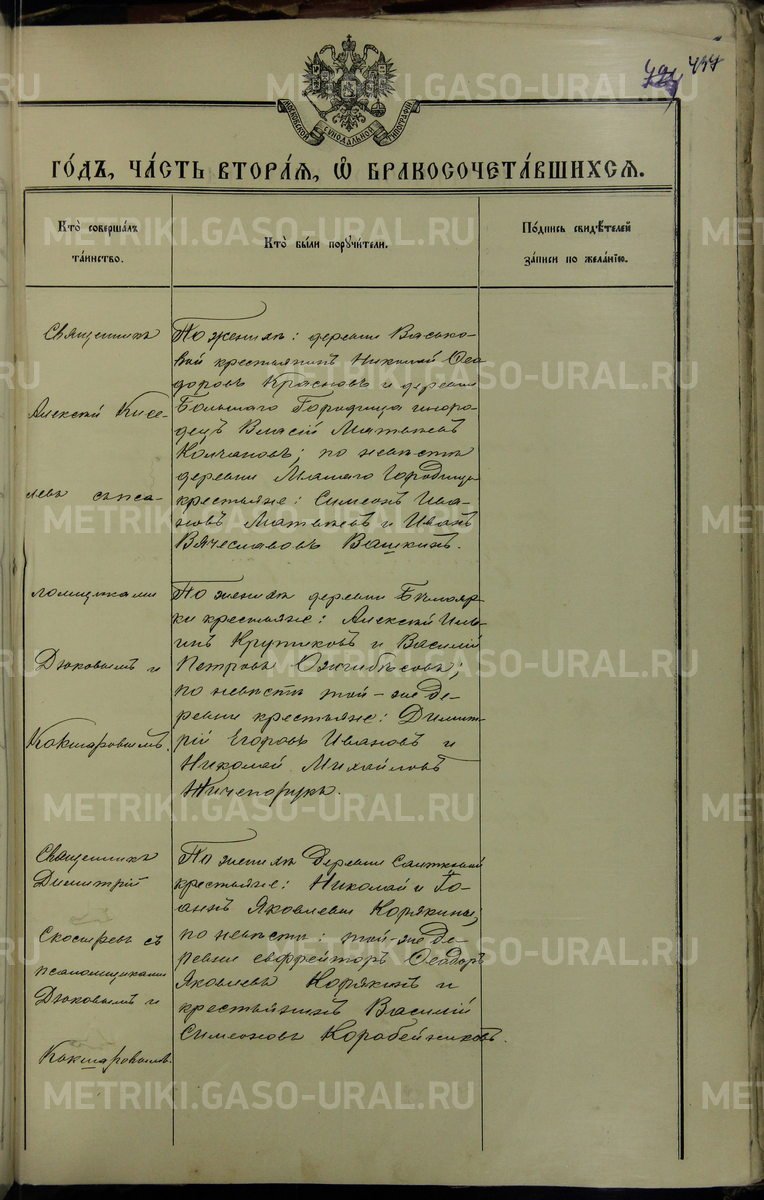 437
МОСКОВСКОЙ СѴНОДАЛЬНОЙ ТИПОГРАФІИ
ГОДЪ, ЧАСТЬ ВТОРАЯ, Ѡ БРАКОСОЧЕТАВШИХСЯ.
Кто совершалъ таинство.
Кто были поручители.
Подпись свидѣтелей записи по желанію.
Священникъ
Алексій Кисе-
левъ съ пса-
ломщиками
Дюковымъ и
Кокшаровымъ.
По женихѣ: деревни Васько-
вой крестьянинъ Николай Ѳео
доровъ Красновъ и деревни
Большаго Городища иноро-
децъ Власій Матвѣевъ
Колчановъ; по невѣстѣ
деревни Малаго Городища
крестьяне: Симеонъ Ива-
новъ Матвѣевъ и Иванъ
Вячеславовъ Вашкинъ.
По женихѣ деревни
ки крестьяне: Алексій Иль-
инъ Крутиковъ и Василій
Петровъ Ожгибѣсовъ;
по невѣстѣ той-же де-
ревни крестьяне: Димит-
рій Егоровъ Ивановъ и
Николай Михайловъ
Ничепорукъ.
Священникъ
Димитрій
Скосыревъ съ
псаломщиками
Дюковымъ и
Кокшаровымъ.
По женихѣ деревни
крестьяне: Николай и Іо-
аннъ Яковлевы Корякины;
по невѣстѣ: той-же де-
ревни ефрейторъ Ѳеодоръ
Яковлевъ Корякинъ и
крестьянинъ Василій
Симеоновъ Коробейниковъ.
METRIKI.GASO-URAL.RU